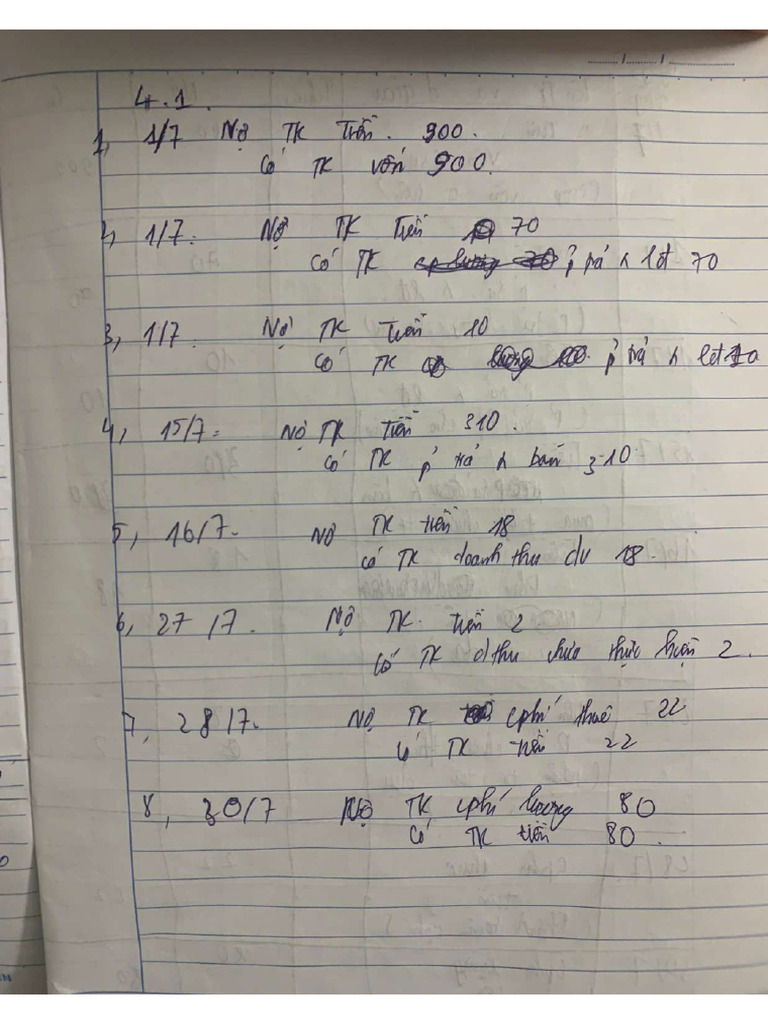 4.1.
1, 1/7 Nợ TK tiền. 900.
Có TK vốn 900.
2, 1/7: Nợ TK tiền 70
Có TK p' trả n lđ 70
3, 1/7: Nợ TK tiền 10
Có TK p' trả n lđ 10
4, 15/7: Nợ TK tiền 310.
Có TK p' trả n bán 310
5, 16/7. Nợ TK tiền 18
Có TK doanh thu dv 18.
6, 27/7. Nợ TK. tiền 2
Có TK dthu chưa thực hiện 2.
7, 28/7. Nợ TK cphí thuê 22
Có TK tiền 22
8, 30/7 Nợ TK cphí lương 80
Có TK tiền 80.